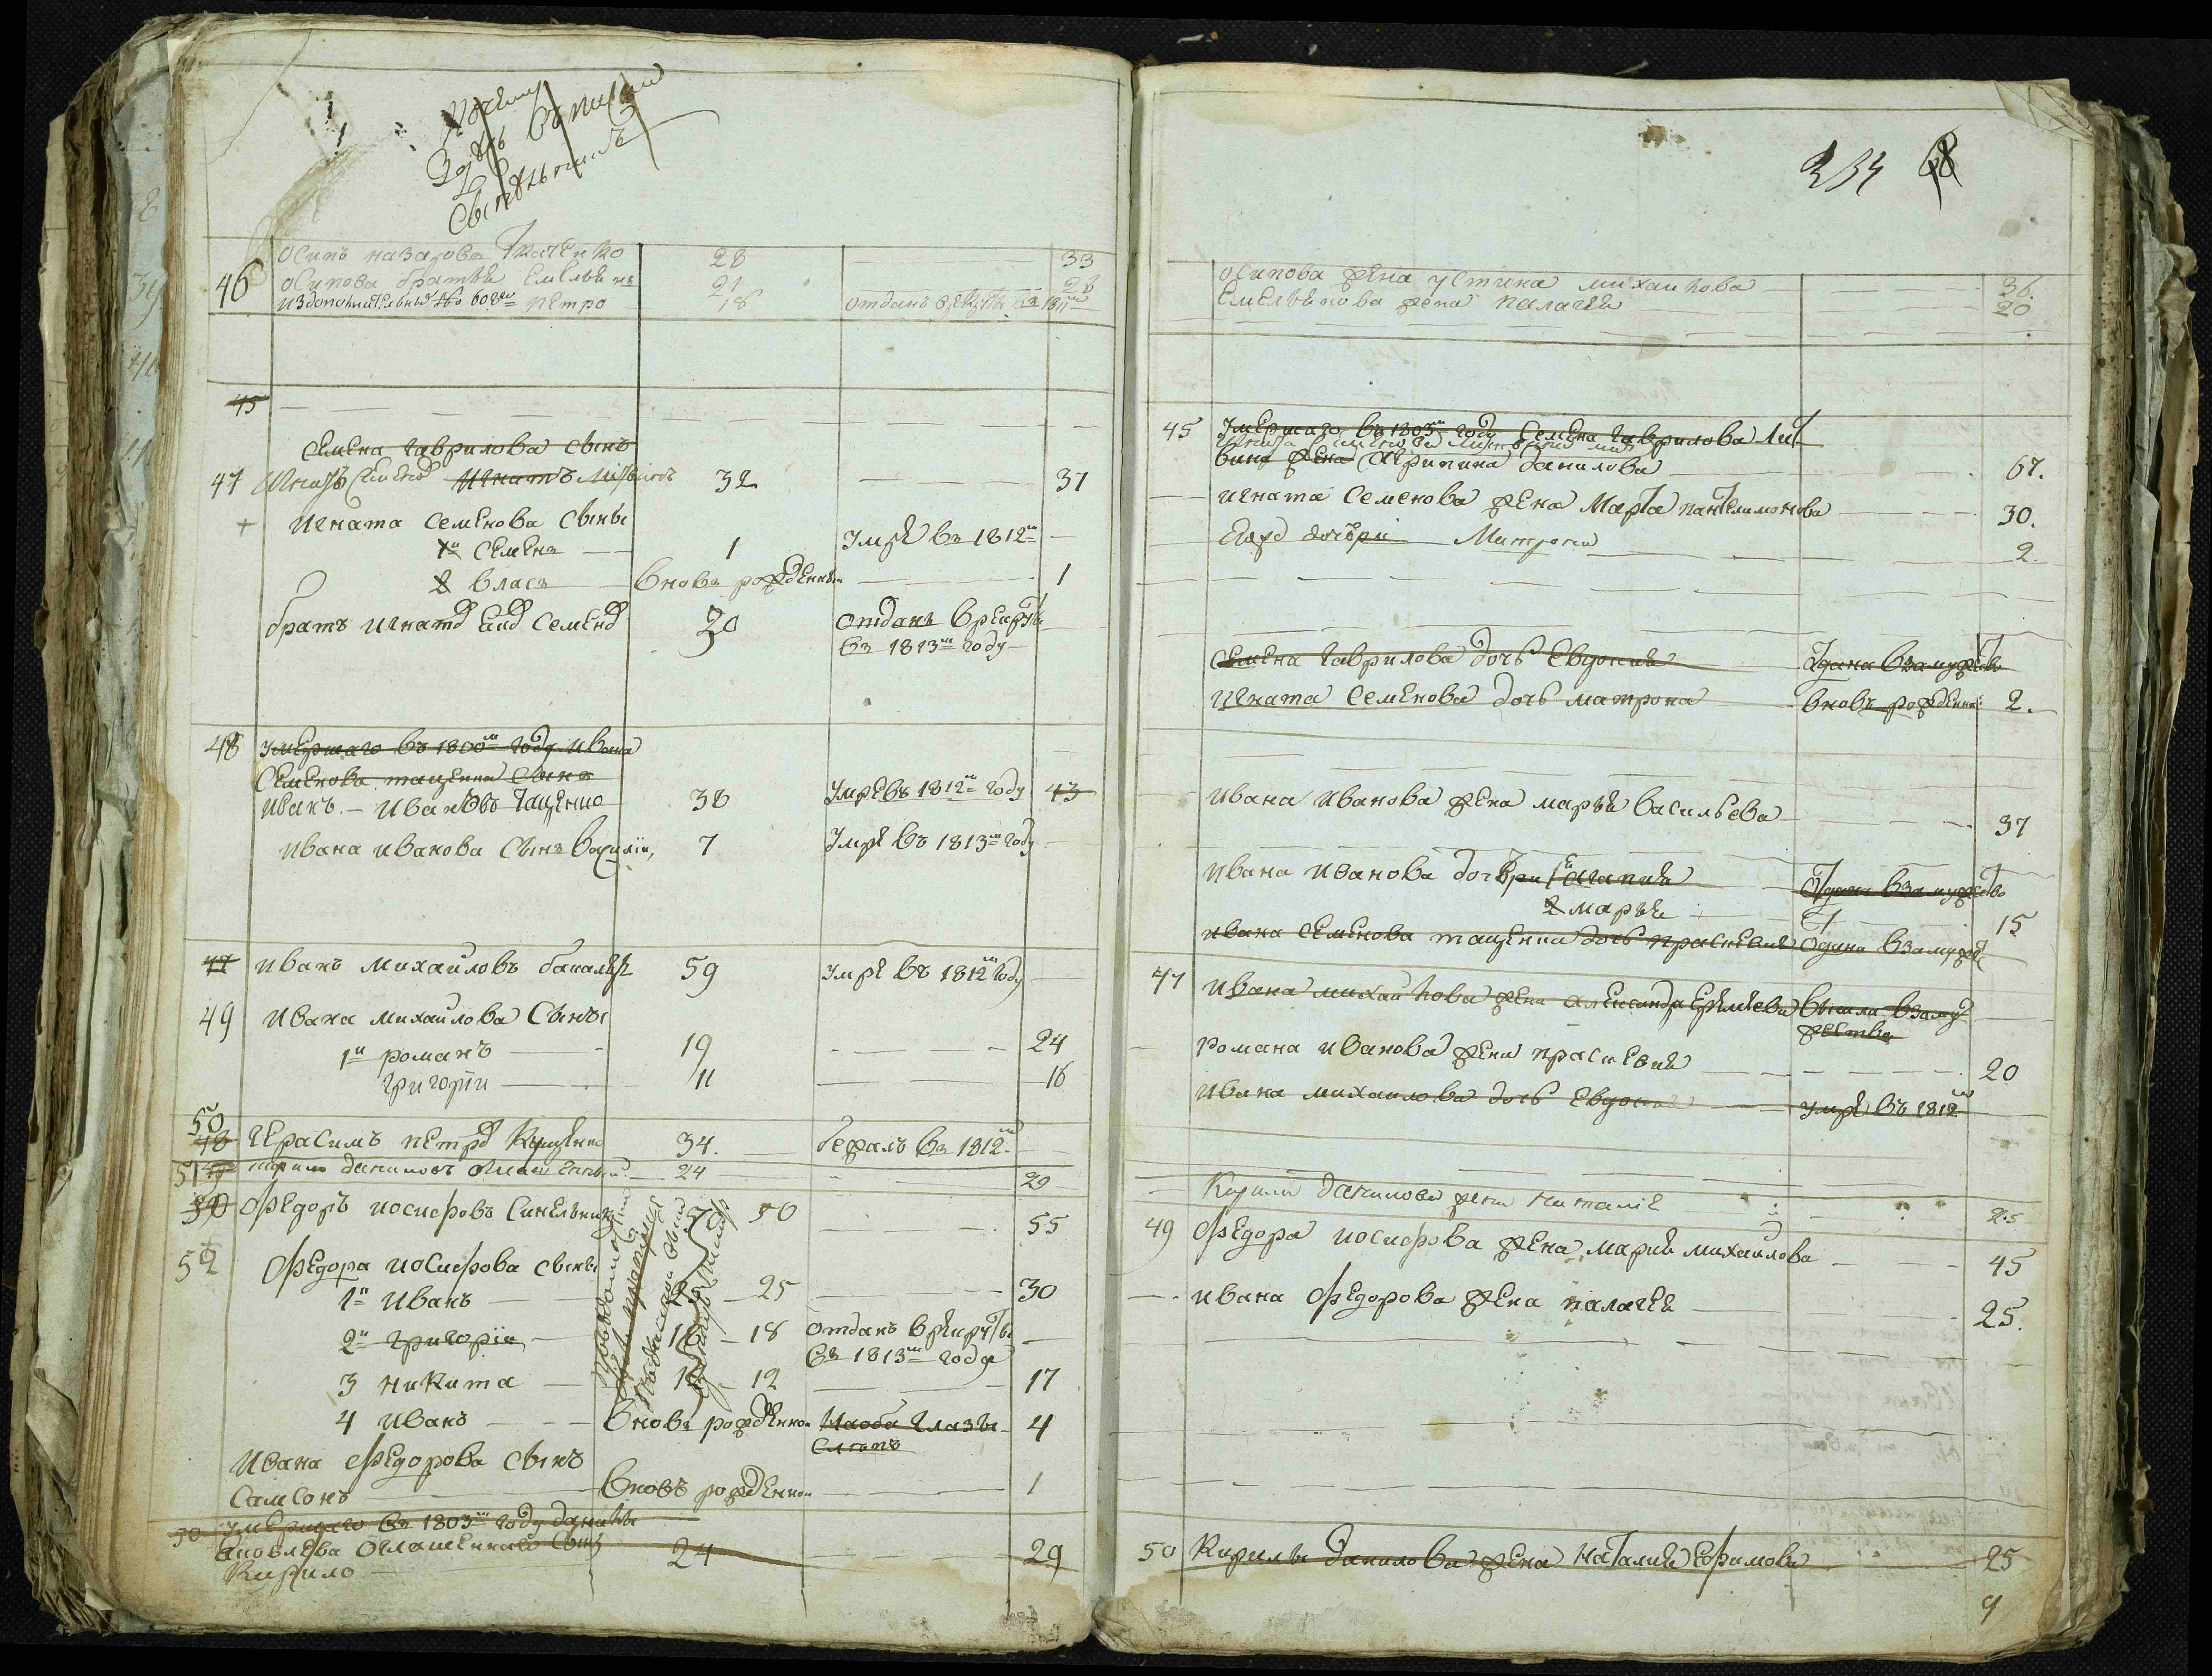 здѣсь
46 Осипъ Назарова Ткаченко 28 33
Осипова братья Емельянъ 21 26
Петро 18 отданъ в рекруты въ 1811м
45
Семена Гаврилова сынъ
47 Игнатъ Семенов Игнатъ 32 37
Игната Семенова сыны
1й Семенъ 1 умре въ 1812м
2 Власъ вновь рожденны 1
братъ Игнатов Семенов 20 отданъ в рекруты
въ 1813м году
48 Умершаго въ 1800м году Ивана
Семенова Таценка сынъ
Иванъ Ивановъ Таценко 38 умре въ 1812м году 43
Ивана Иванова сынъ Василій 7 умре въ 1813м году
47 Иванъ Михайловъ 59 умре въ 1812м году
49 Ивана Михайлова сыны
1й Романъ 19 24
Григорій 11 16
50
48 Герасимъ Петров 34. бежалъ въ 1812м
51 49 Кирило Даниловъ 24 29
50 Федоръ Иосифовъ Синельник 50 50 55
52 Федора Иосифова сыны
1й Иванъ 25 25 30
2й Григорій 18 18 отданъ в рекруты
въ 1813м году
3 Никита 12 12 17
4 Иванъ вновь рожденно 4
Ивана Федорова сынъ
Самсонъ вновь рожденно 1
50 Умершаго въ 1803м году Данилы
Яковлева Оглашеннаго сынъ 24 29
Кирило
234 68
Осипова жена Устина Михайлова 36.
Емельянова жена Палагея 20
45 Умершаго въ 1803м году Семена Гаврилова Лит
вина жена Агрипина Данилова 67.
Игната Семенова жена Марта Пантелимонова 30.
Его дочери Митрона 2.
Семена Гаврилова дочь Евдокия Отдана в замужество
Игната Семенова дочь Матрона вновь рожденна 2.
Ивана Иванова жена Марья Васильева 37
Ивана Иванова дочери 1я Агапия Отдана в замужество
2 Марья 15
Ивана Семенова Таценка дочь Прасковия отдана в замуже
47 Ивана Михайлова жена Александра Еремеева вышла в заму
жество
Романа Иванова жена Прасковия 20
Ивана Михайлова дочь Евдокия умре въ 1812м
Кирила Данилова жена Наталіе 25
49 Федора Иосифова жена Мария Михайлова 45
Ивана Федорова жена Палагея 25.
50 Кирилы Данилова жена Наталия Ефимова 25
9